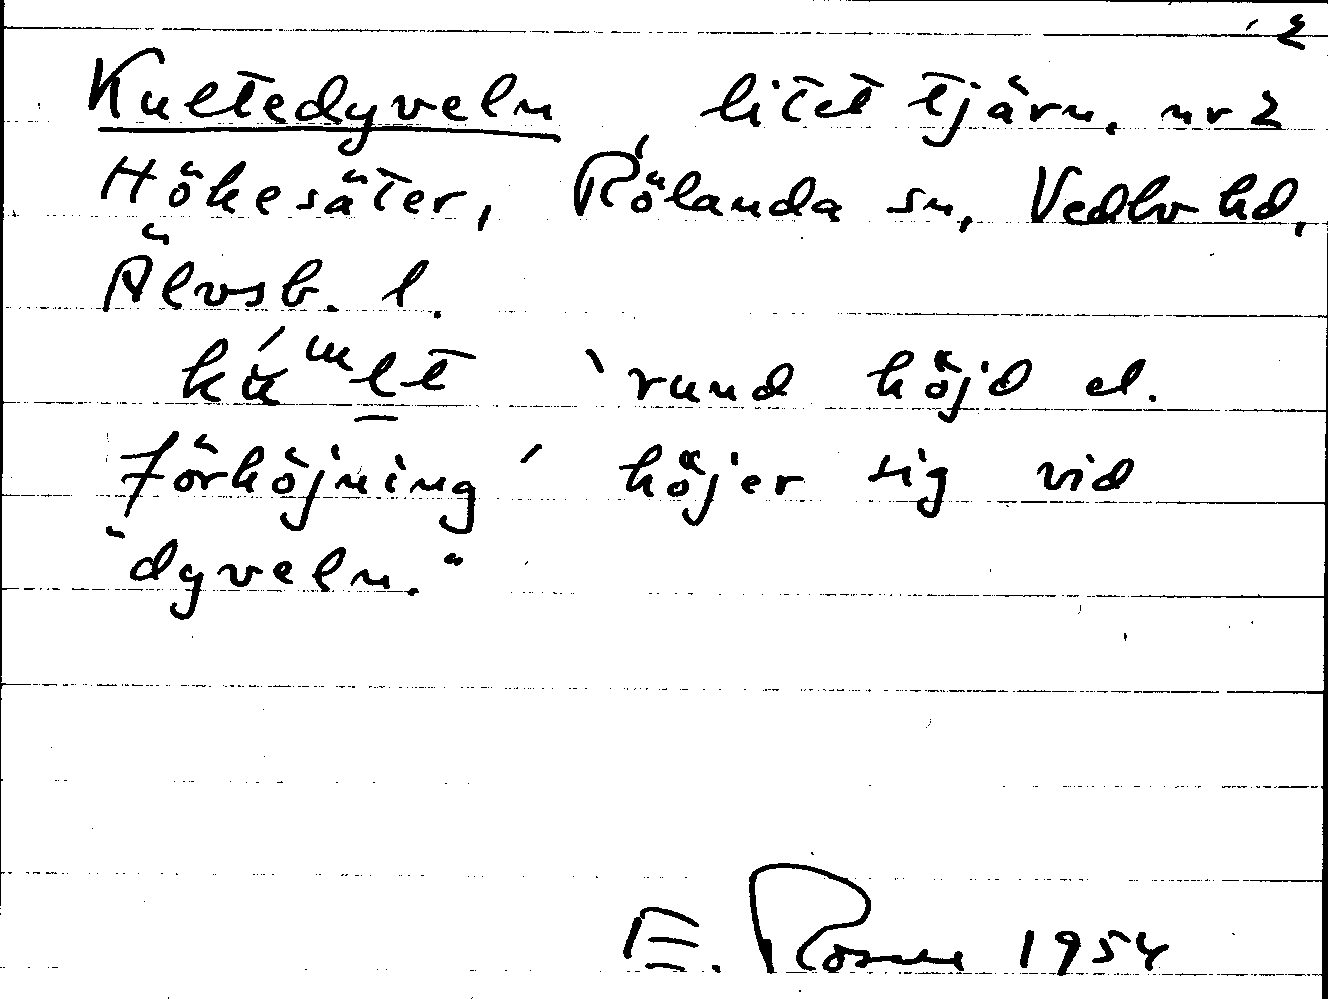 2
Kultedyveln, litet tjärn, nr 2
Hökesäter, Rölanda sn, Vedbo hd,
Älvsb. l.
'rund höjd el.
förhöjning' höjer sig vid
"dyveln."
E. Rosell 1954